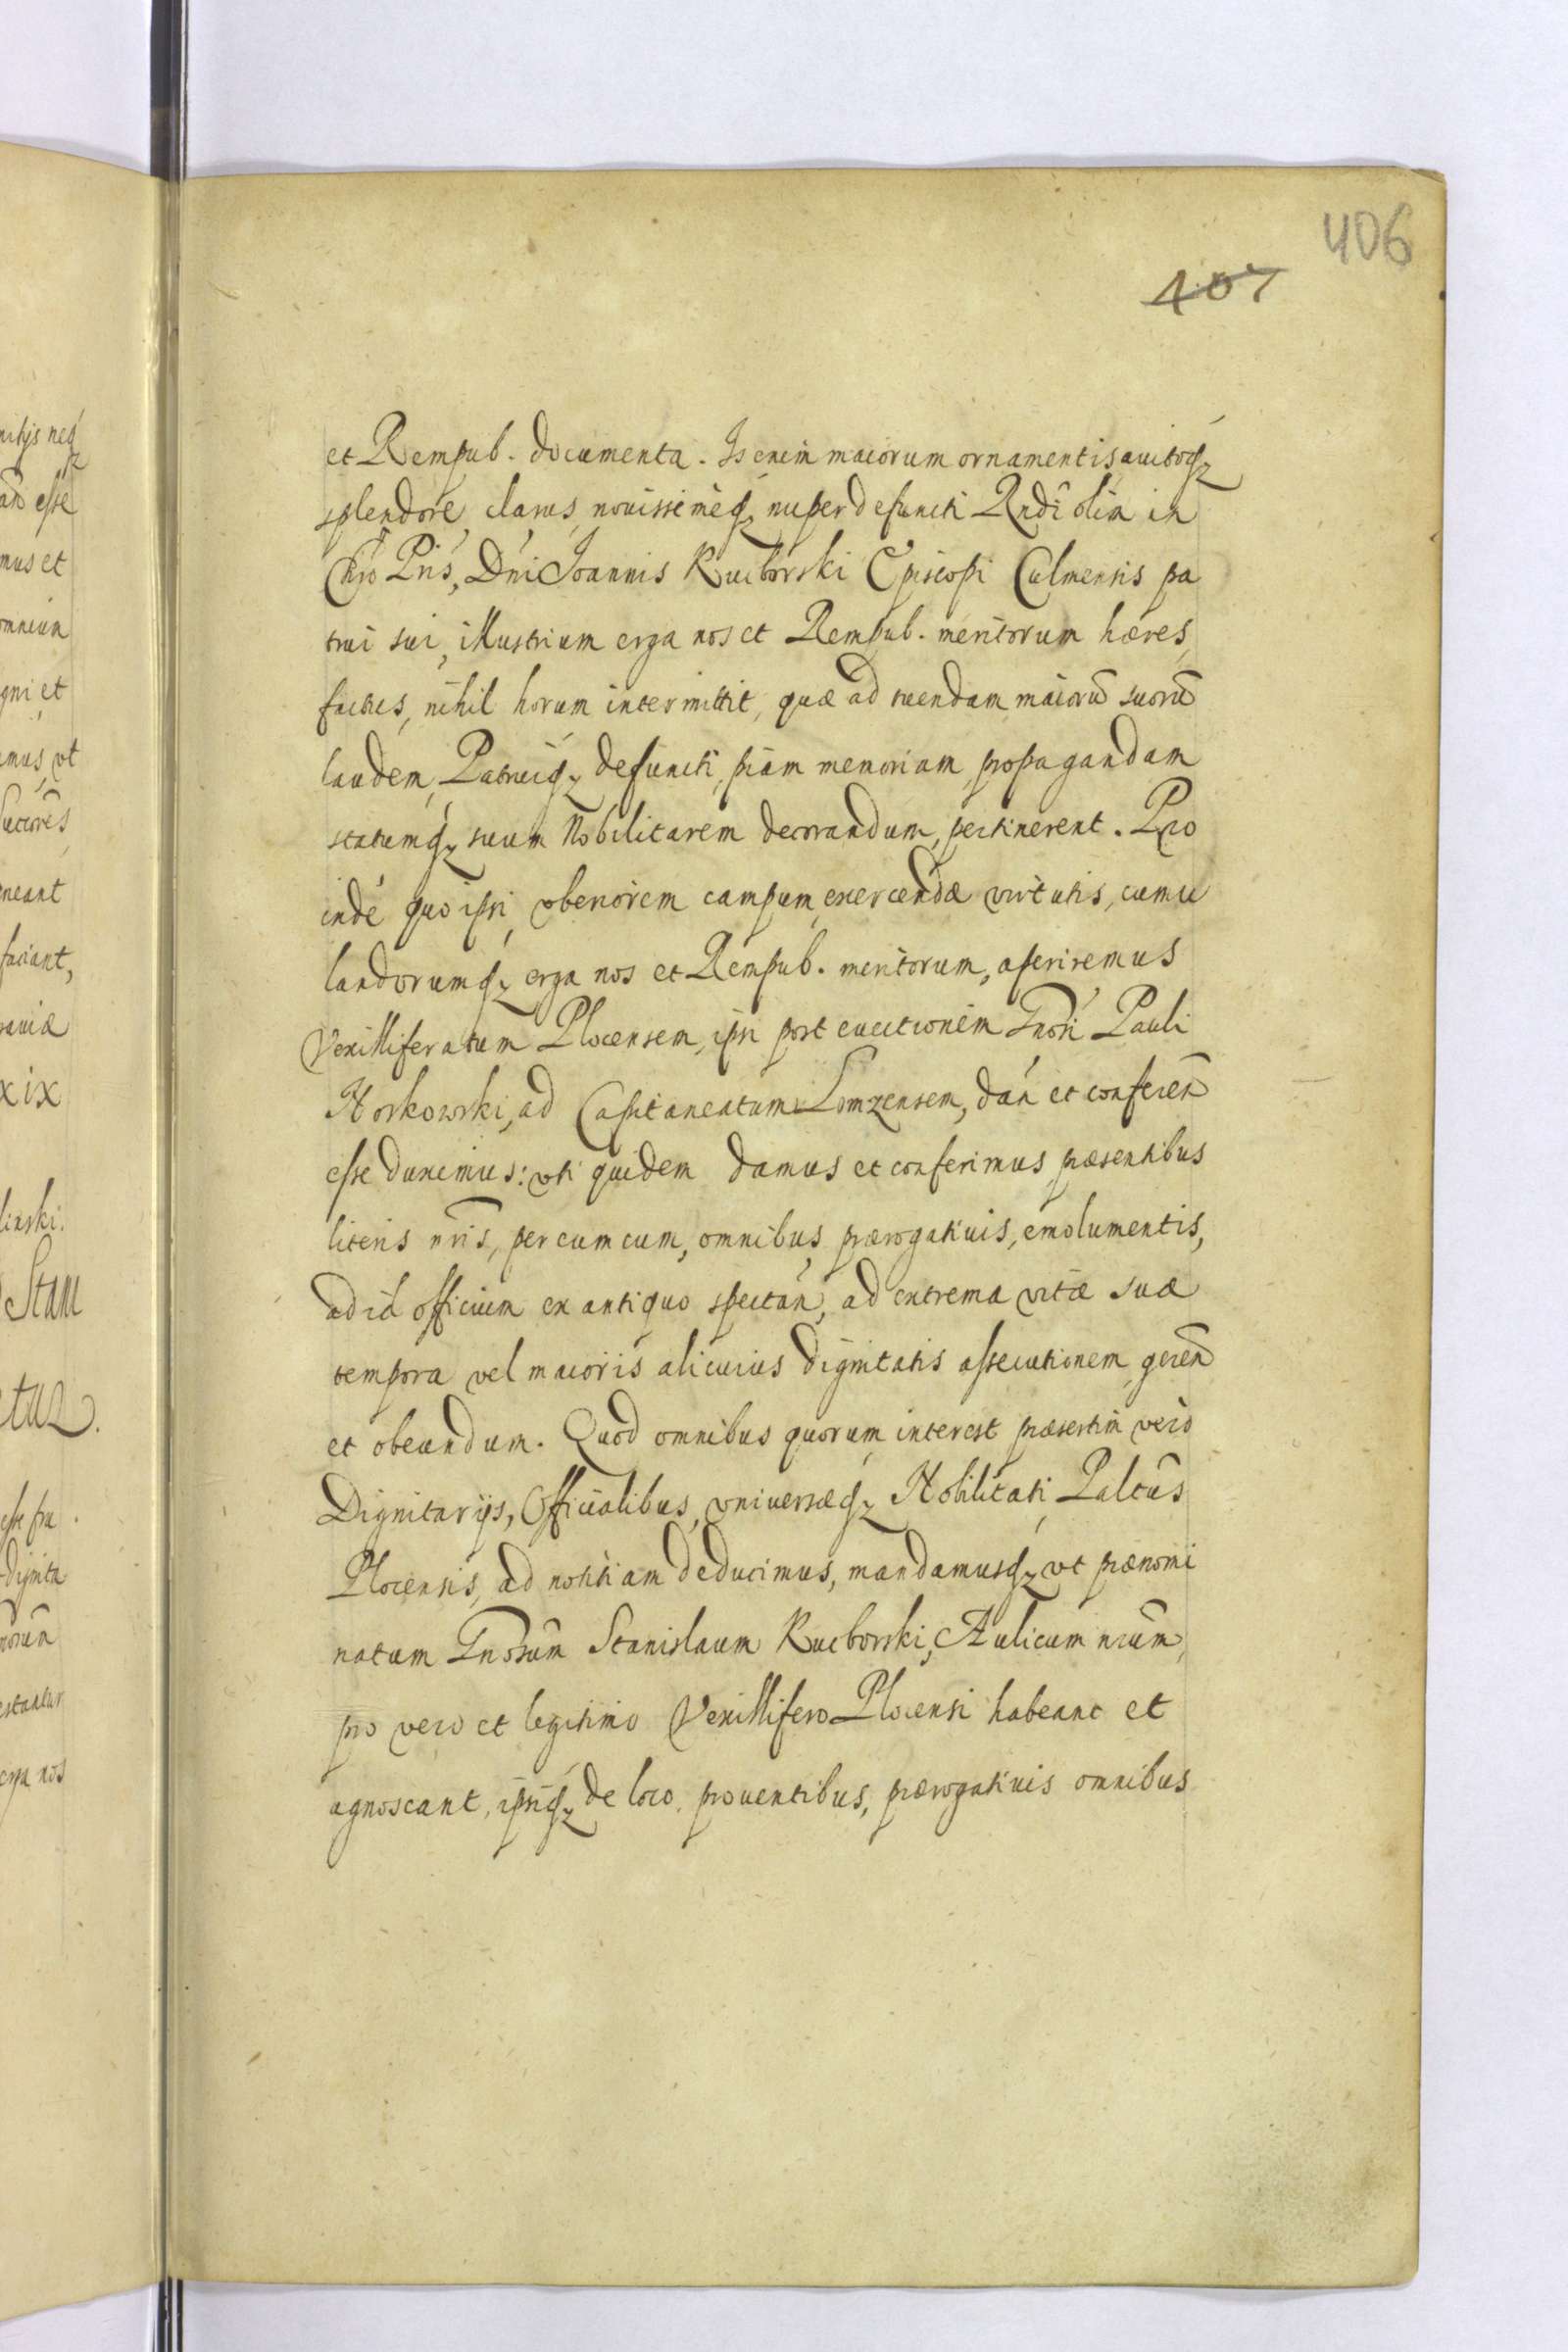 406
407
et Rempub. documenta. Is enim maiorum ornamentis auitoq₃
splendore, clarus, nouissimèq₃ nuper defuncti Rndi olim in
Chro Pris, Dni Joannis Kuiborski Episcopi Culmensis pa
trui sui, illustrium erga nos et Rempub. meritorum hæres,
factus, nihil horum intermittit, quæ ad tuendam maiorū suorū
laudem, Patruiq₃ defuncti, piam memoriam, propagandam
statumq₃ suum Nobilitarem decorandum, pertinerent. Pro
indè quo ipsi, vberiorem campum, exercendæ virtutis, cumu
landorumq₃ erga nos et Rempub. meritorum, aperiremus
Vexilliferatum Plocensem, ipsi post euectionem Gnosi Pauli
Noskowski, ad Capitaneatum Lomzensem, dan̄ et conferen̄
esse duximus: vti quidem damus et conferimus præsentibus
literis nris, per eum cum, omnibus, prærogatiuis, emolumentis,
ad id officium ex antiquo spectan̄, ad extrema vitæ suæ
tempora vel maioris alicuius dignitatis assecutionem, geren̄
et obeundum. Quod omnibus quorum interest præsertim vero
Dignitarijs, Officialibus, vniuersæq₃ Nobilitati, Paltūs
Plocensis, ad notitiam deducimus, mandamusq₃ vt prænomi
natum Gnosum Stanislaum Kuiborski, Aulicum nrūm,
pro vero et legitimo Vexillifero Plocensi habeant et
agnoscant, ipsiq₃ de loco, prouentibus, prærogatiuis omnibus